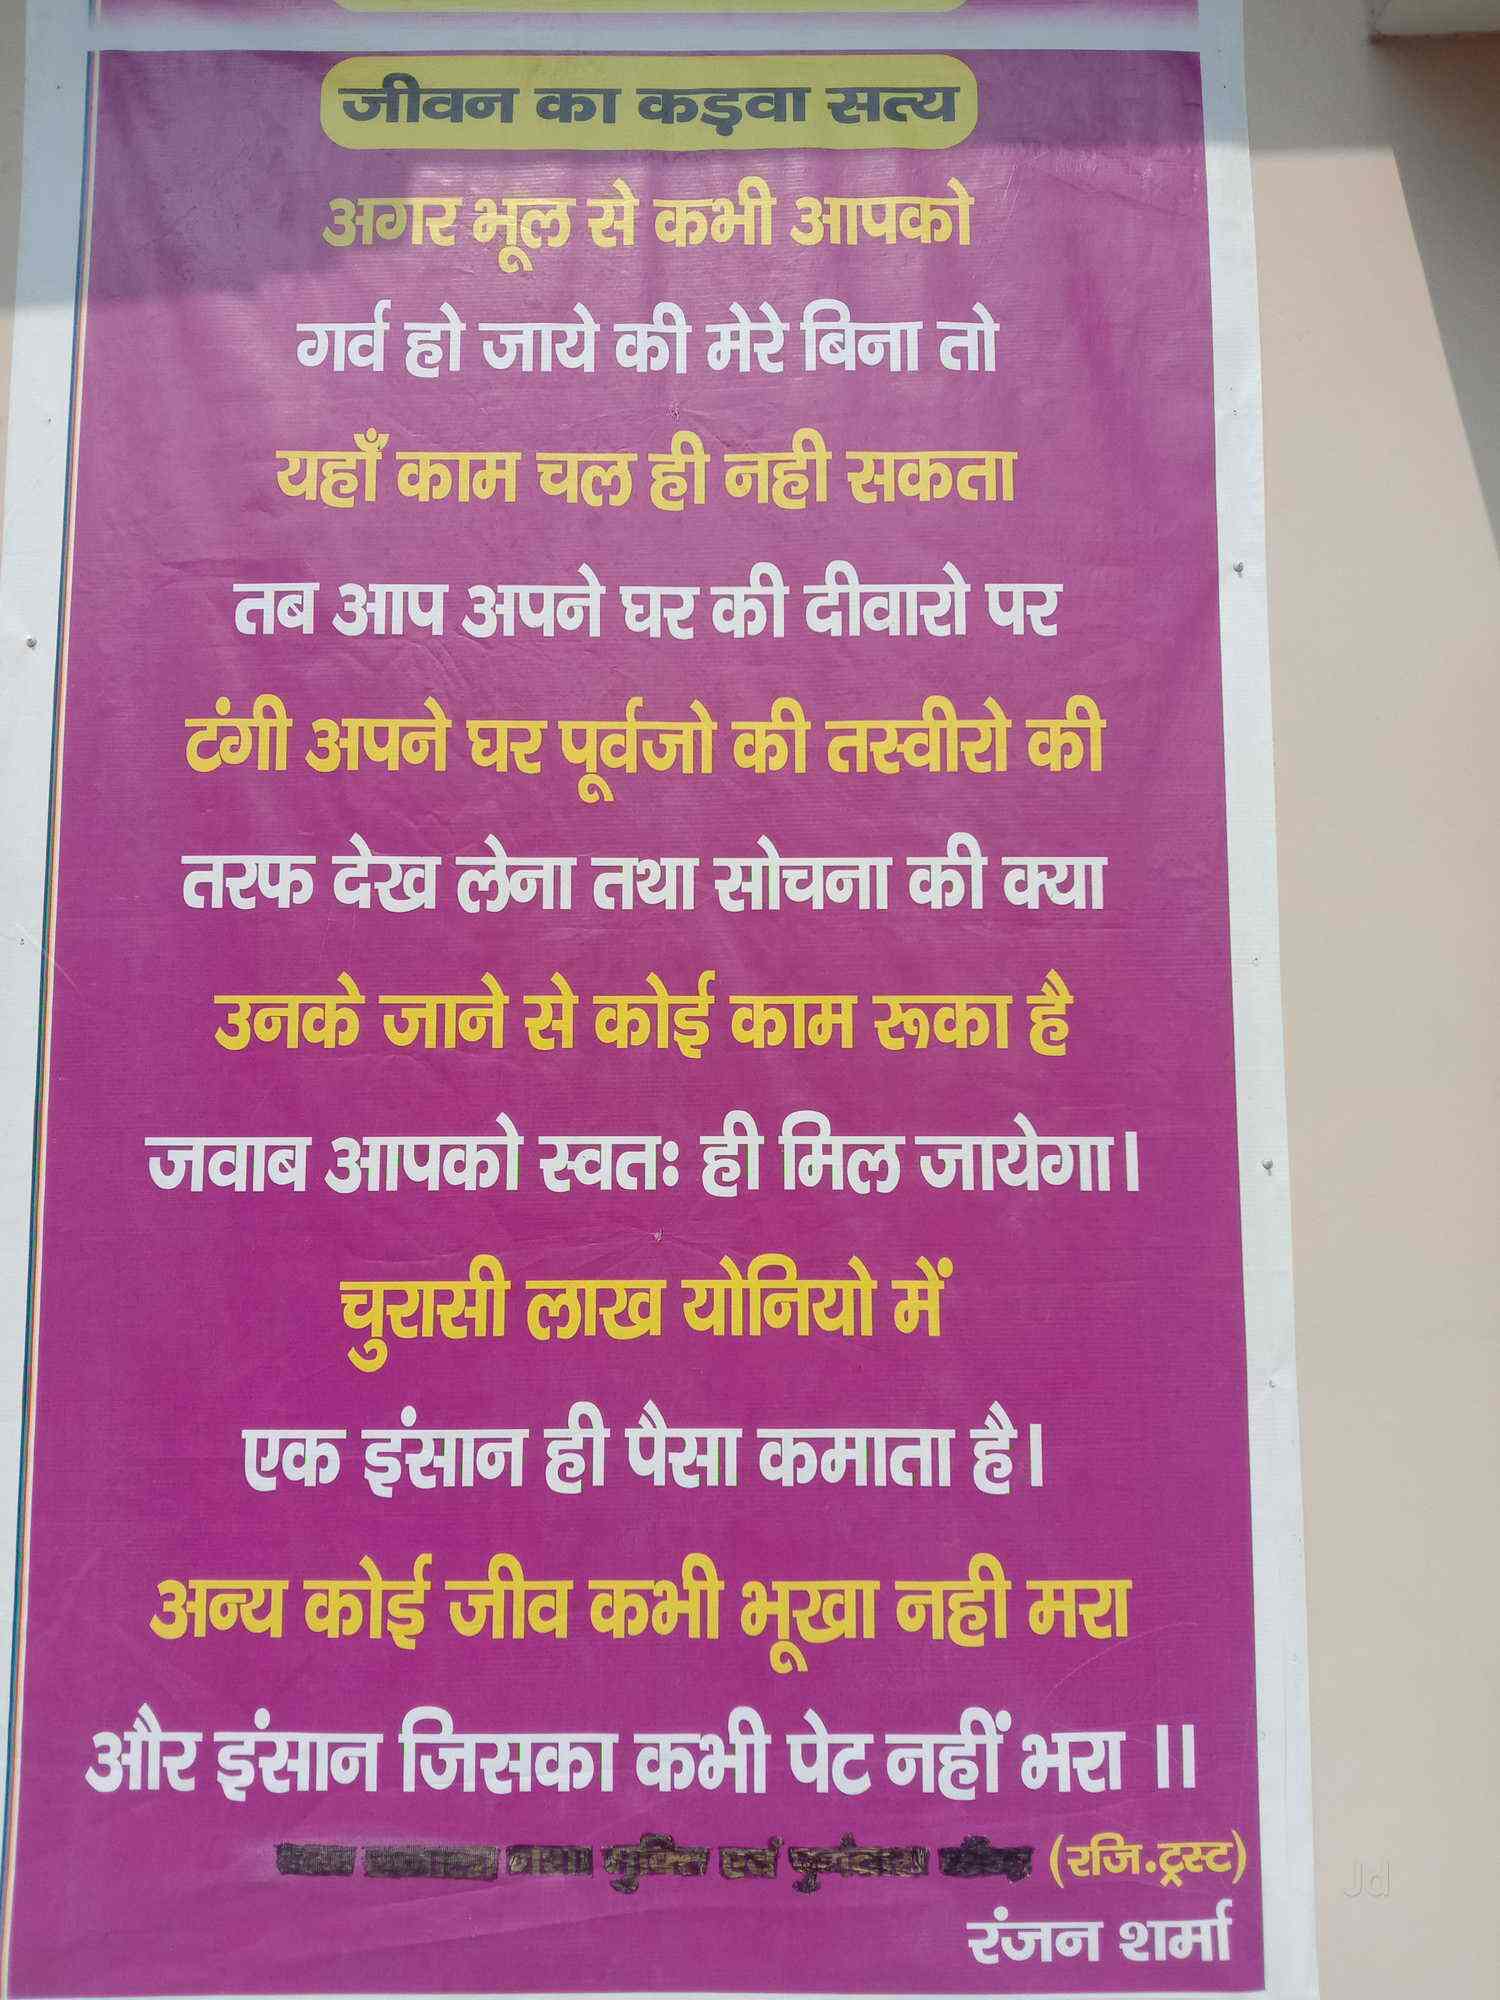 जीवन का कड़वा सत्य
अगर भूल से कभी आपको
गर्व हो जाये की मेरे बिना तो
यहाँ काम चल ही नही सकता
तब आप अपने घर की दीवारो पर
टंगी अपने घर पूर्वजो की तस्वीरो की
तरफ देख लेना तथा सोचना की क्या
उनके जाने से कोई काम रूका है
जवाब आपको स्वतः ही मिल जायेगा।
चुरासी लाख योनियो में
एक इंसान ही पैसा कमाता है।
अन्य कोई जीव कभी भूखा नही मरा
और इंसान जिसका कभी पेट नहीं भरा ।।
(रजि.ट्रस्ट)
रंजन शर्मा
Jd